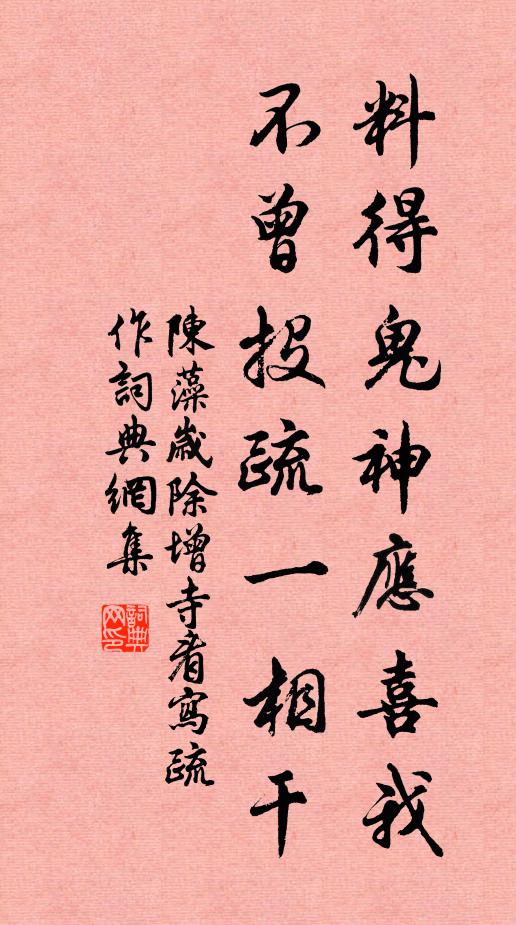 料得鬼神應喜我
不曾投疏一相干
陳藻歲除增寺看寫疏
作詞典網集
詞典網印